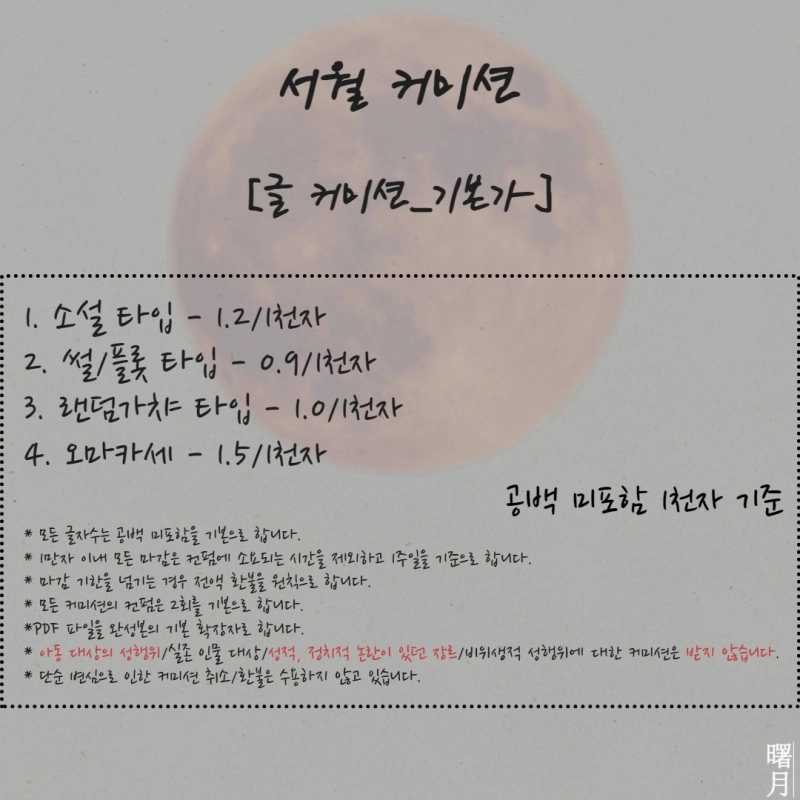 서월 커미션
[글 커미션_기본가]
1. 소설 타입 - 1.2/1천자
2. 썰/플롯 타입 - 0.9/1천자
3. 랜덤가챠 타입 - 1.0/1천자
4. 오마카세 - 1.5/1천자
공백 미포함 1천자 기준
* 모든 글자수는 공백 미포함을 기본으로 합니다.
* 1만자 이내 모든 마감은 컨펌에 소요되는 시간을 제외하고 1주일을 기준으로 합니다.
* 마감 기한을 넘기는 경우 전액 환불을 원칙으로 합니다.
* 모든 커미션의 컨펌은 2회를 기본으로 합니다.
*PDF 파일을 완성본의 기본 확장자로 합니다.
* 아동 대상의 성행위/실존 인물 대상/성적, 정치적 논란이 있던 장르/비위생적 성행위에 대한 커미션은 받지 않습니다.
* 단순 변심으로 인한 커미션 취소/환불은 수용하지 않고 있습니다.
曙月